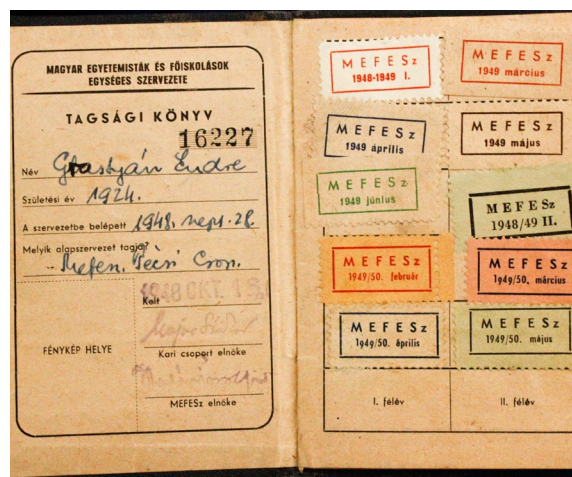 MAGYAR EGYETEMISTÁK ÉS FŐISKOLÁSOK
EGYSÉGES SZERVEZETE
TAGSÁGI KÖNYV
16227
Név Grastyán Endre
Születési év 1924.
A szervezetbe belépett 1948. szept. 28
Melyik alapszervezet tagja?
Mefesz. Pécsi Csop.
FÉNYKÉP HELYE
1948 OKT. 1
Kelt
Kari csoport elnöke
MEFESz elnöke
MEFESz
1948-1949 I.
MEFESz
1949 március
MEFESz
1949 április
MEFESz
1949 május
MEFESz
1949 június
MEFESz
1948/49 II.
MEFESz
1949/50. február
MEFESz
1949/50. március
MEFESz
1949/50. április
MEFESz
1949/50. május
I. félév
II. félév